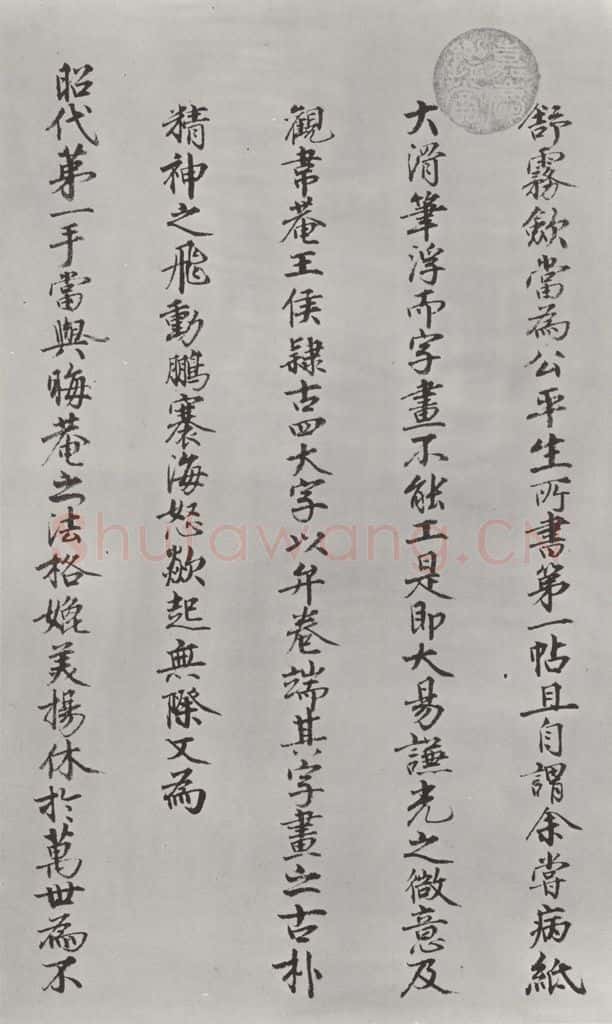 舒霧歛當為公平生所書第一帖且自謂余嘗病紙
大滑筆浮而字畫不能工是即大易謙光之微意及
觀韋菴王侯隸古四大字以弁卷端其字畫之古朴
精神之飛動鵬騫海怒歘起無際又為
昭代第一手當與晦菴之法格媲美揚休於萬世為不
Shufawang.CN